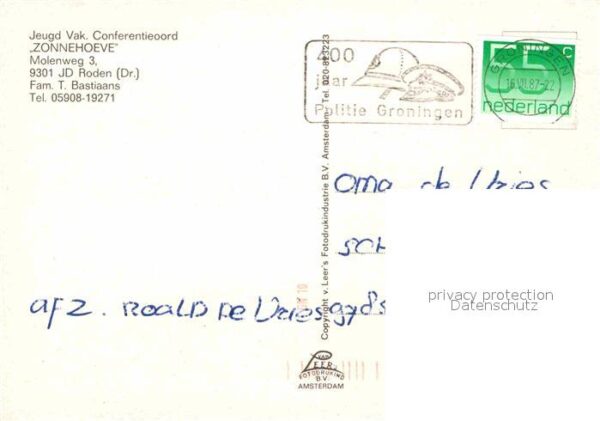 Jeugd Vak. Conferentieoord
"ZONNEHOEVE"
Molenweg 3,
9301 JD Roden (Dr.)
Fam. T. Bastiaans
Tel. 05908-19271
400
jaar
Politie Groningen
55 c
nederland
16.VII.87-22
Oma de Vries
SCH
afz. ROALD De Vries
privacy protection
Datenschutz
Copyright v. Leer's Fotodrukindustrie B.V. Amsterdam - Tel. 020-823223
VAN
LEER'S
FOTODRUKIND
B.V.
AMSTERDAM